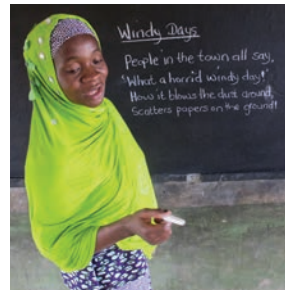 Windy Days
People in the town all say,
"What a horrid windy day!
How it blows the dust around,
Scatters papers on the ground!